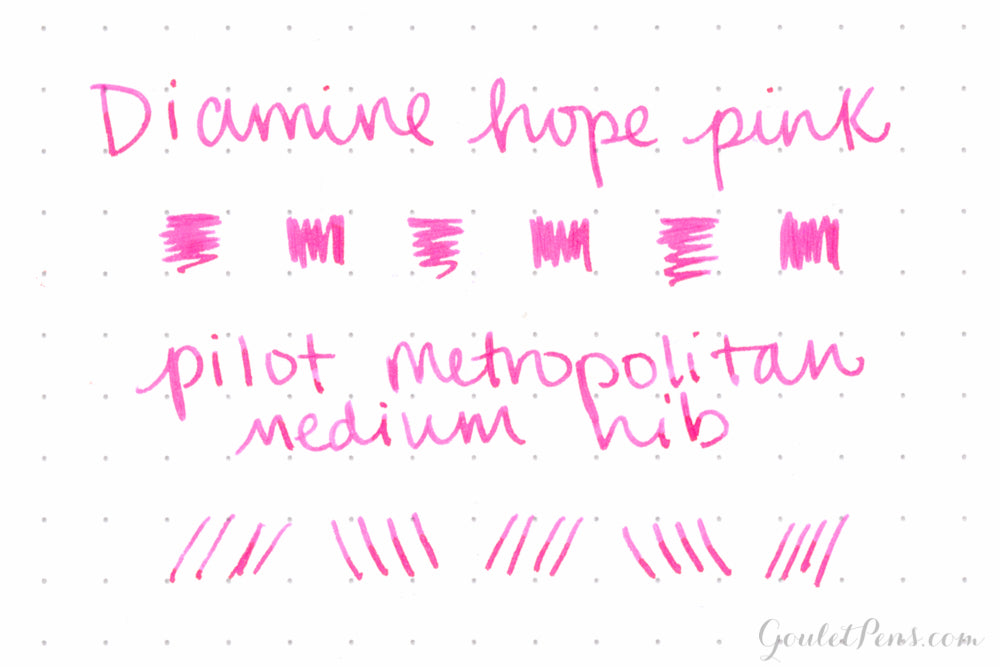 Diamine hope pink
pilot metropolitan
medium nib
GouletPens.com